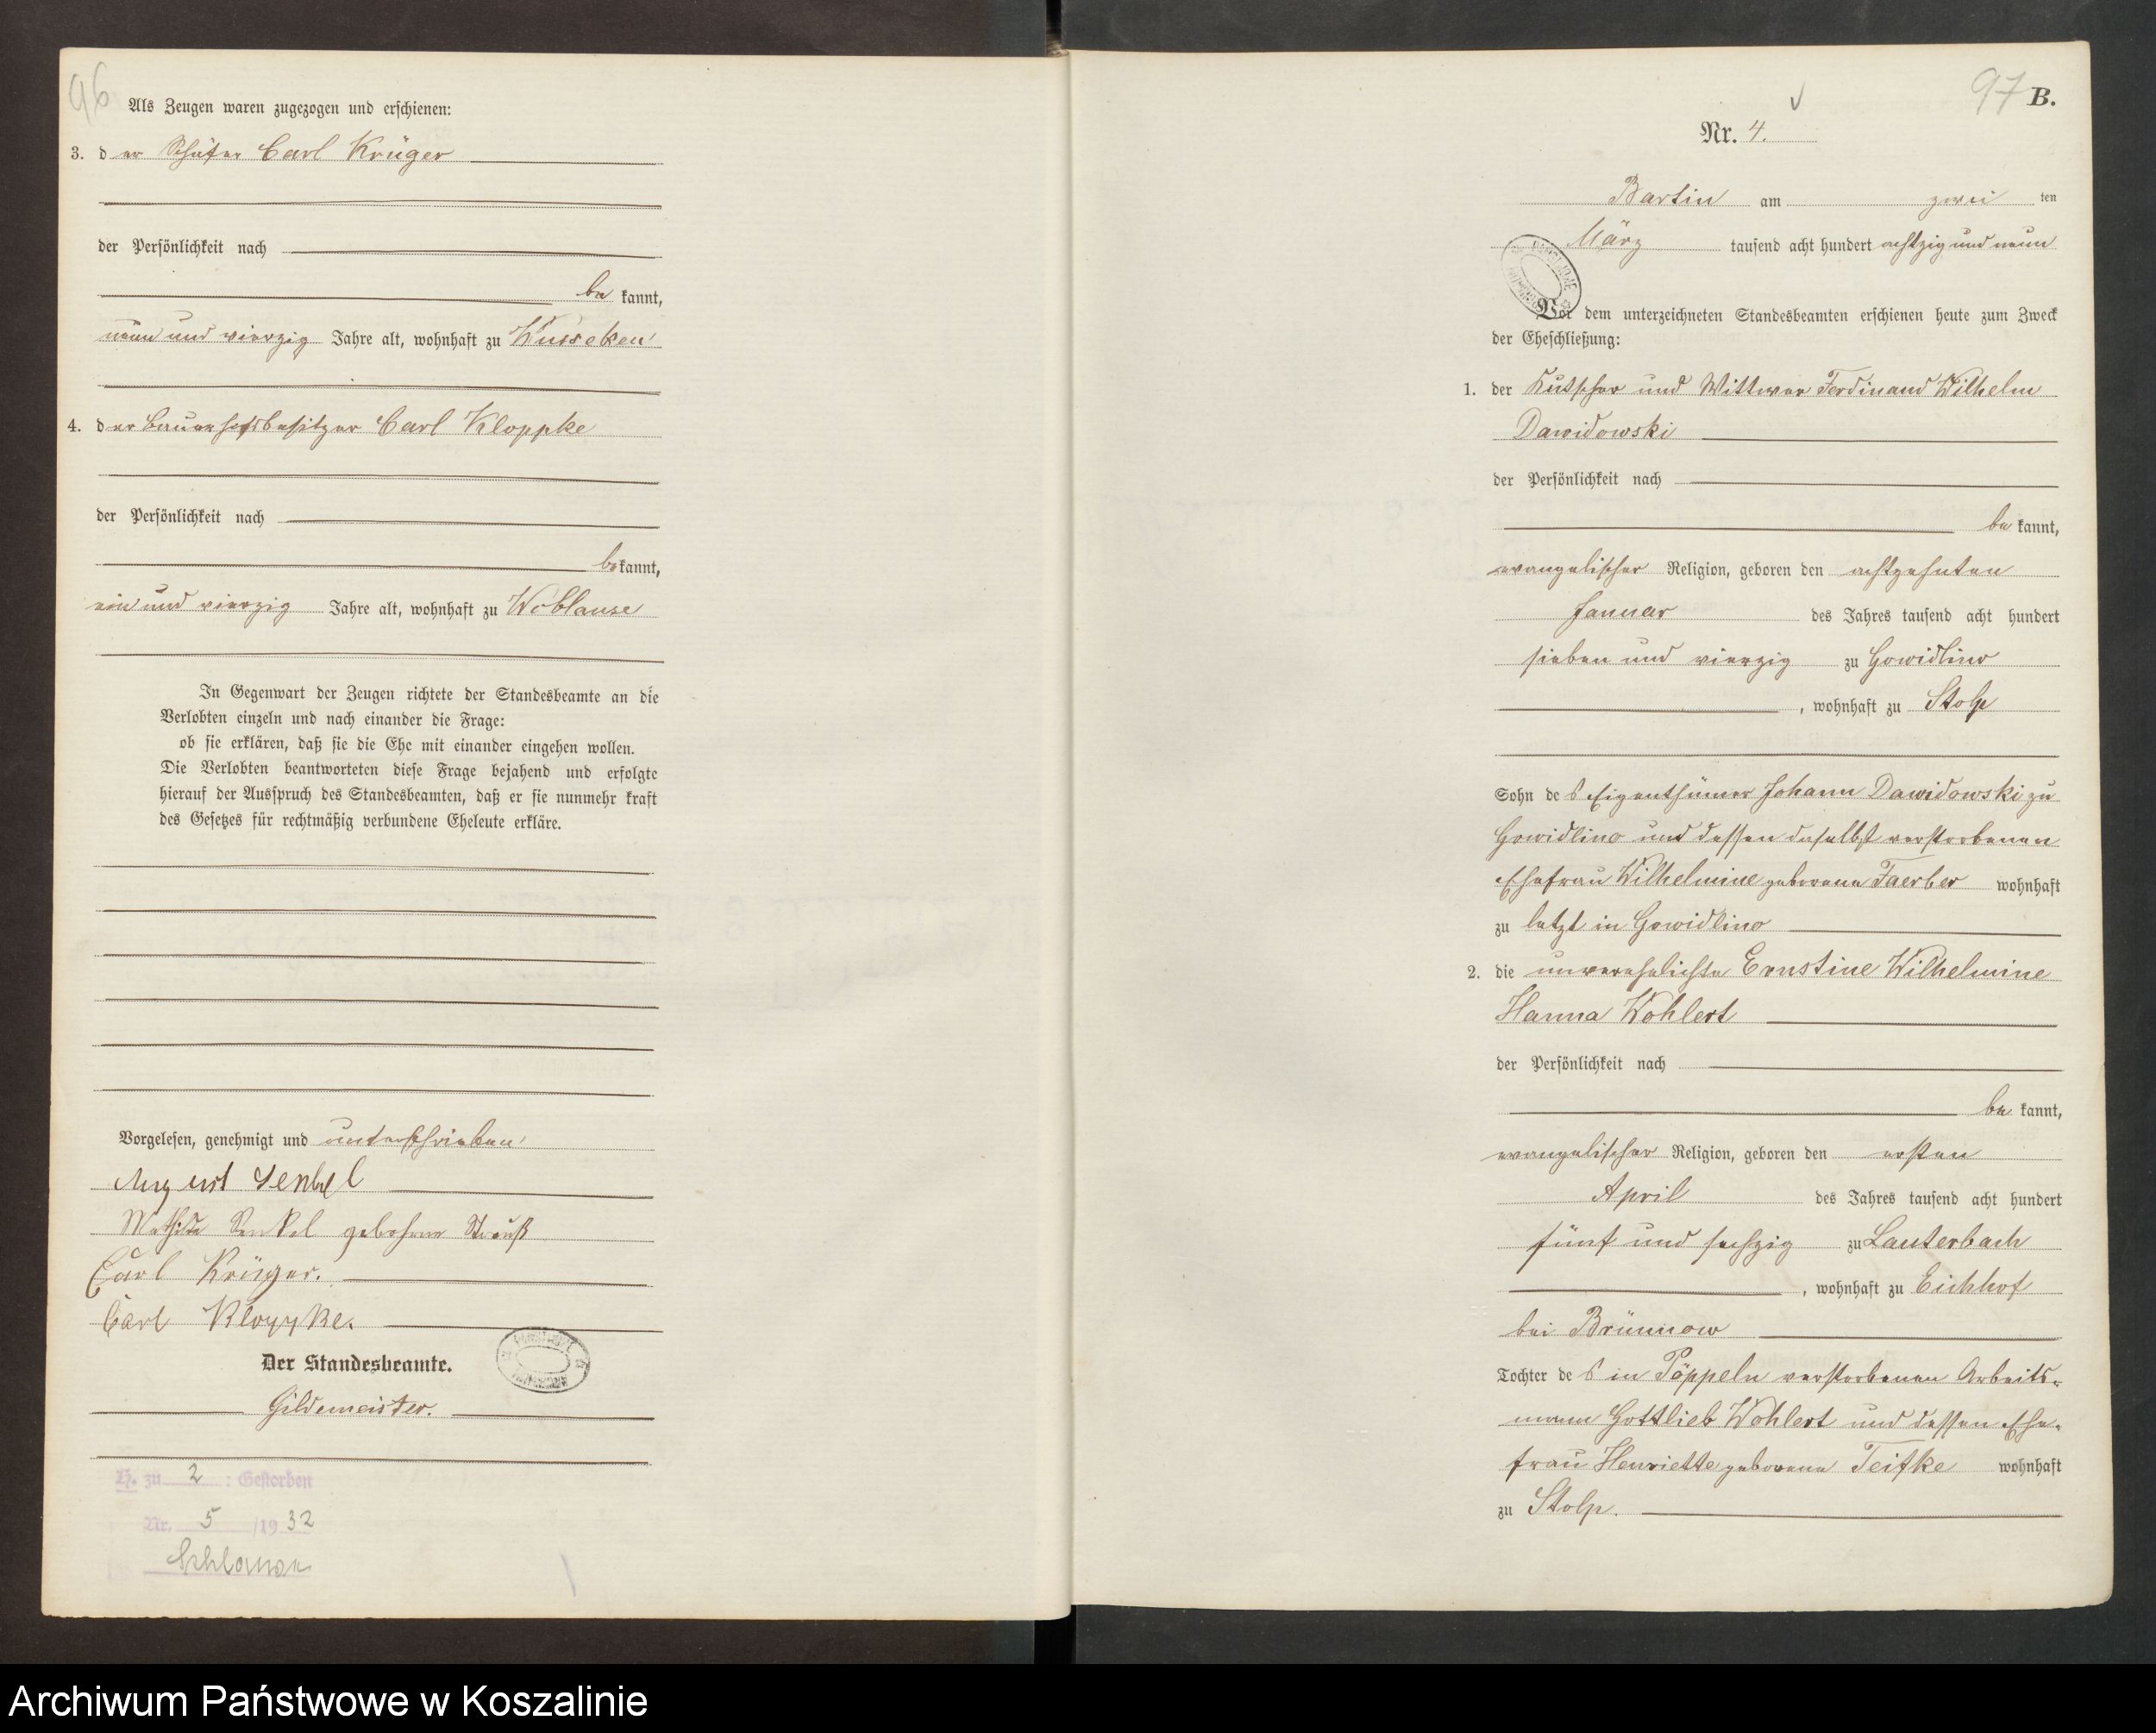 96
Als Zeugen waren zugezogen und erschienen:
3. der Schäfer Carl Krüger
der Persönlichkeit nach
be kannt,
neun und vierzig Jahre alt, wohnhaft zu Wusseken
4. der Bauerhofsbesitzer Carl Kloppke
der Persönlichkeit nach
be kannt,
ein und vierzig Jahre alt, wohnhaft zu Woblanse
In Gegenwart der Zeugen richtete der Standesbeamte an die
Verlobten einzeln und nach einander die Frage:
ob sie erklären, daß sie die Ehe mit einander eingehen wollen.
Die Verlobten beantworteten diese Frage bejahend und erfolgte
hierauf der Ausspruch des Standesbeamten, daß er sie nunmehr kraft
des Gesetzes für rechtmäßig verbundene Eheleute erkläre.
Vorgelesen, genehmigt und unterschrieben
August Senkel
Mathilde Senkel geborene Strauß
Carl Krüger.
Carl Kloppke.
Der Standesbeamte.
Gildemeister.
H. zu 2 : Gestorben
Nr. 5 /1932
Schlawe
97 B.
Nr. 4.
Bartin am zwei ten
März tausend acht hundert achtzig und neun
Vor dem unterzeichneten Standesbeamten erschienen heute zum Zweck
der Eheschließung:
1. der Kutscher und Wittwer Ferdinand Wilhelm
Dawidowski
der Persönlichkeit nach
be kannt,
evangelischer Religion, geboren den achtzehnten
Januar des Jahres tausend acht hundert
sieben und vierzig zu Gowidlino
, wohnhaft zu Stolp
Sohn des Eigenthümer Johann Dawidowski zu
Gowidlino und dessen daselbst verstorbenen
Ehefrau Wilhelmine geborene Faerber wohnhaft
zu letzt in Gowidlino
2. die unverehelichte Ernstine Wilhelmine
Hanna Wohlert
der Persönlichkeit nach
be kannt,
evangelischer Religion, geboren den ersten
April des Jahres tausend acht hundert
fünf und sechzig zu Lauterbach
, wohnhaft zu Eichhof
bei Brünnow
Tochter des in Pöppeln verstorbenen Arbeits-
mann Gottlieb Wohlert und dessen Ehe-
frau Henriette geborene Teifke wohnhaft
zu Stolp.
Archiwum Państwowe w Koszalinie